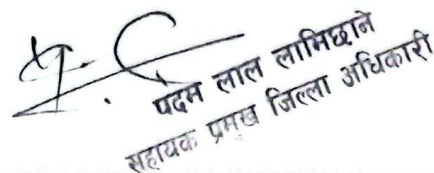 पदम लाल लामिछाने
सहायक प्रमुख जिल्ला अधिकारी